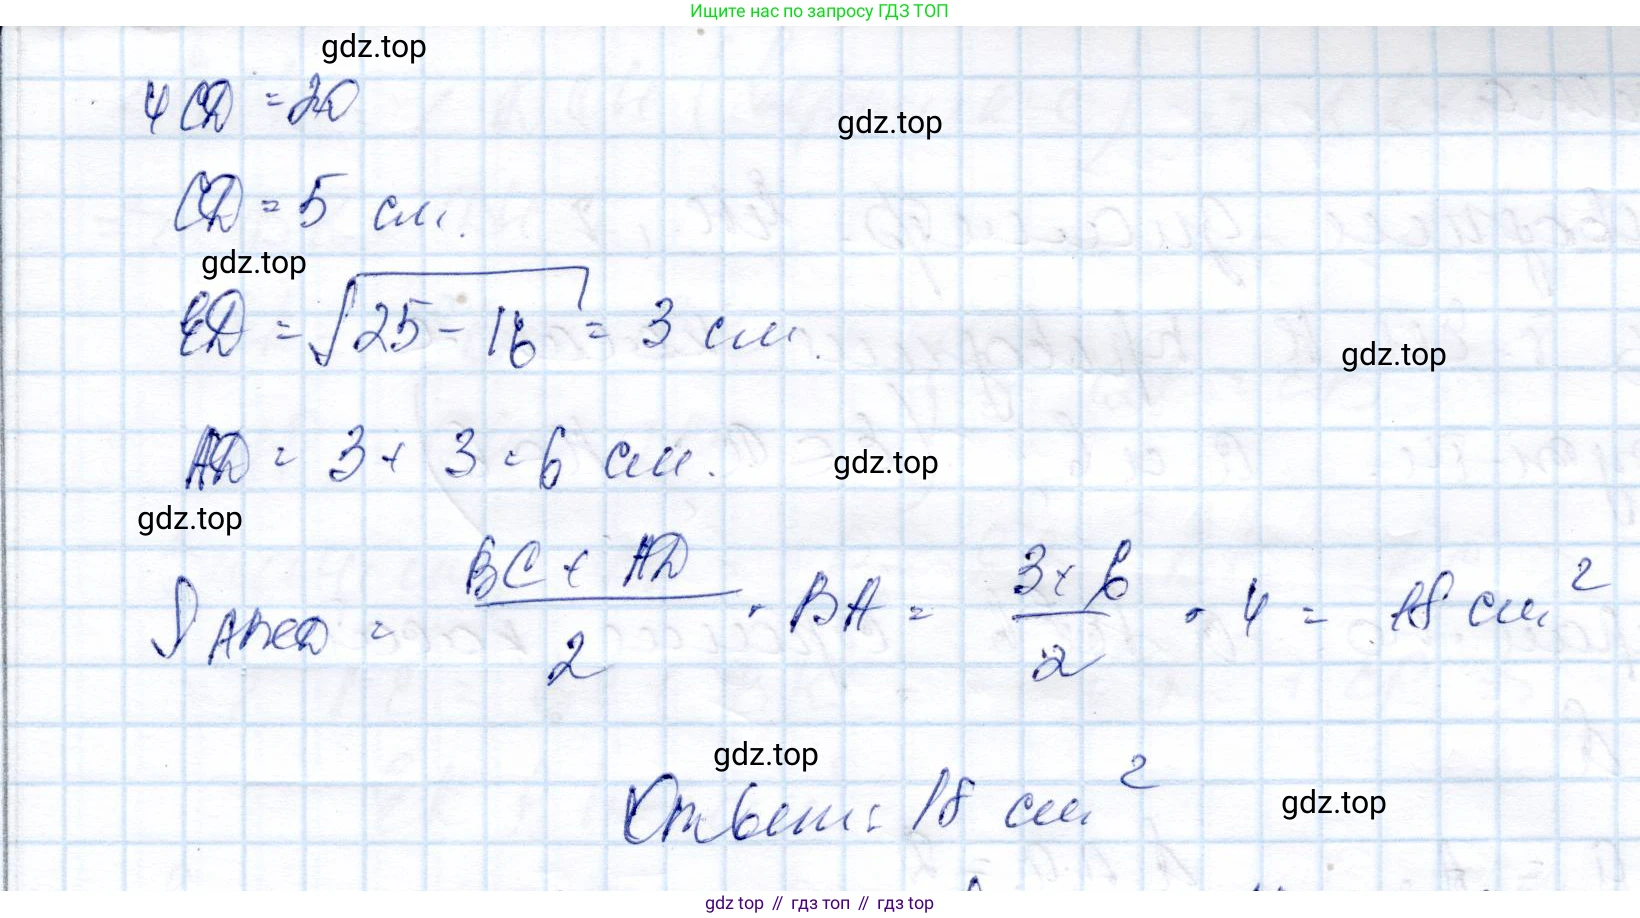 Ищите нас по запросу ГДЗ ТОП
gdz.top
4 CD = 20
gdz.top
CD = 5 см.
gdz.top
ED = √25 - 16 = 3 см.
gdz.top
AD = 3 + 3 = 6 см.
gdz.top
gdz.top
S ABCD = (BC + AD)/2 · BA = (3 + 6)/2 · 4 = 18 см²
gdz.top
Ответ: 18 см²
gdz.top
gdz top // гдз топ // гдз top